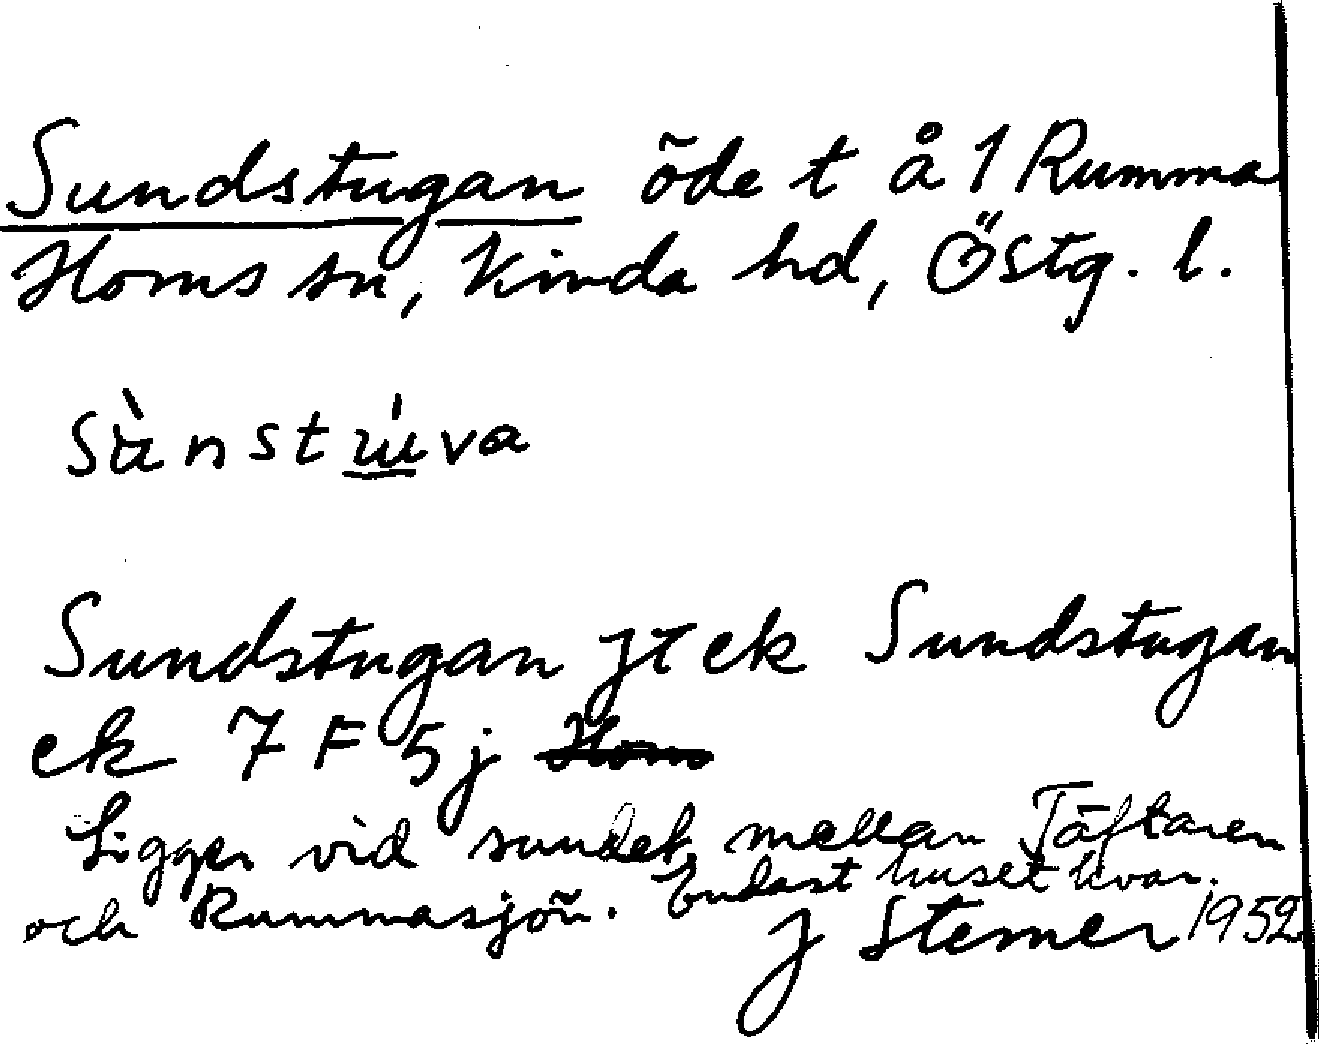 Sundstugan öde t å 1 Rumma
Horns sn, Kinda hd, Östg. l.
Sùnstu̍va
Sundstugan jt ek Sundstugan
ek 7 F 5j Horn
Ligger vid sundet mellan Täftaren
och Rummasjön. Endast huset kvar.
J Sterner 1952